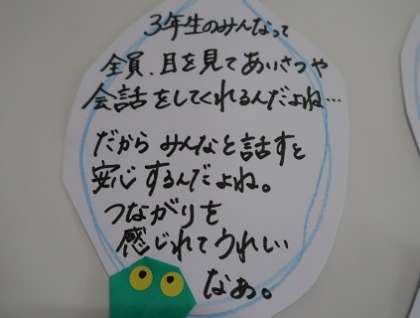 3年生のみんなって
全員、目を見てあいさつや
会話をしてくれるんだよね…
だから みんなと話すと
安心するんだよね。
つながりを
感じれてうれしい
なぁ。